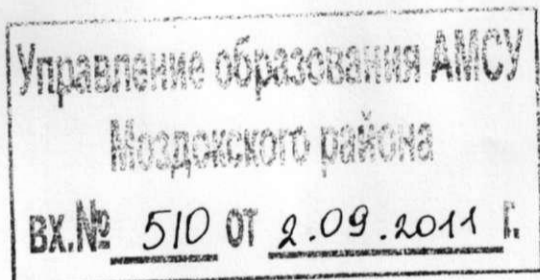 Управление образования АМСУ
Моздокского района
вх.№ 510 от 2.09.2011 г.